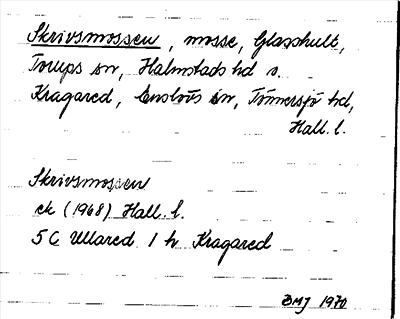 Skrivsmossen, mosse, Glashult,
Torups sn, Halmstads hd o.
Kragared, Enslövs sn, Tönnersjö hd,
Hall. l.
Skrivsmossen
ek (1968) Hall. l.
5 C Ullared 1 h Kragared
BMJ 1970